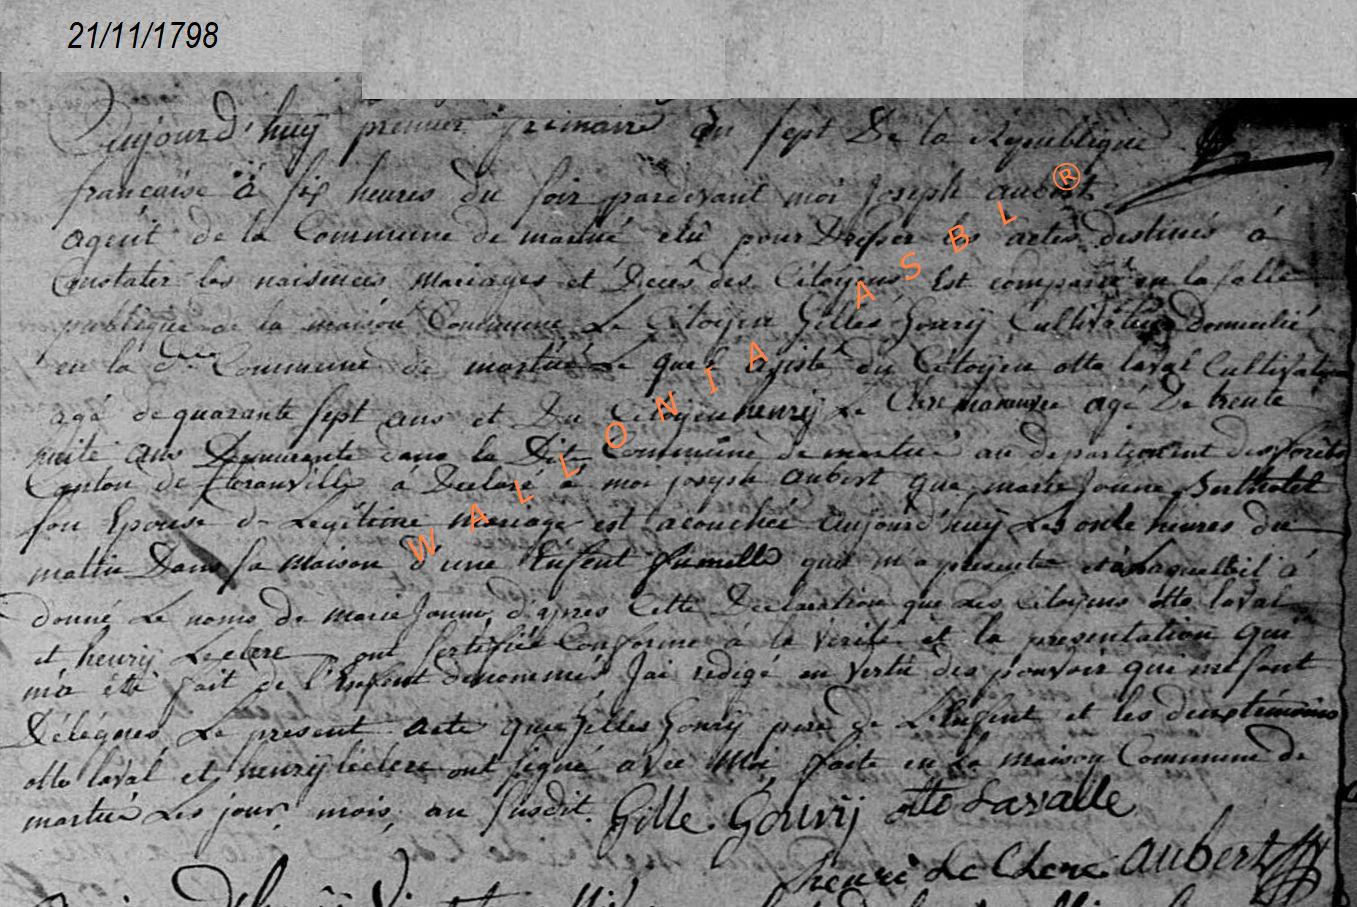 21/11/1798
Aujourd'huÿ premier frimaire an sept De la Republique
francaise à six heures du soir pardevant moi Joseph aubert
agent de la Commune de martué elu pour Dresser les actes destinés à
Constater les naisances mariages et Deces des Citoyens Est comparu en la salle
publique de la maison Commune Le Citoÿen Gilles Gourÿ Cultivateur Domicilié
en la de Commune de martué Le quel assisté du Citoÿen otto laval Cultivateur
agé de quarante sept ans et Du Citoÿen henrÿ Le Clere manouvre agé De trente
huite ans Demeurante dans la Dite Commune de martué au departement des forêts
Canton de floranville à Declaré à moi joseph aubert que marie Jeanne Berthotet
son Epouse de Legitime mariage est acouchée aujourd'huÿ Les onze heures du
matin Dans sa maison d'une Enfent fumelle qu'il m'a presenté et à Laquelle il à
donné Le noms de marie Jeanne, d'apres Cette Declaration que Les Citoÿens otto laval
et henrÿ Leclere ont Sertifiée Conforme à la verité et la presentation qui
m'a été fait de l'Enfent denommés Jai redigé en vertu des pouvoir qui me sont
Délégués Le present acte que gilles Gourÿ pere de L'Enfent et les deux témoins
otto laval et henrÿ leclere ont signé avec Moi faite en La maison Commune de
martué Les jour mois, an susdit. Gille Gourÿ otto Lavalle
henri Le Clere aubert
WALLONIA ASBL ®